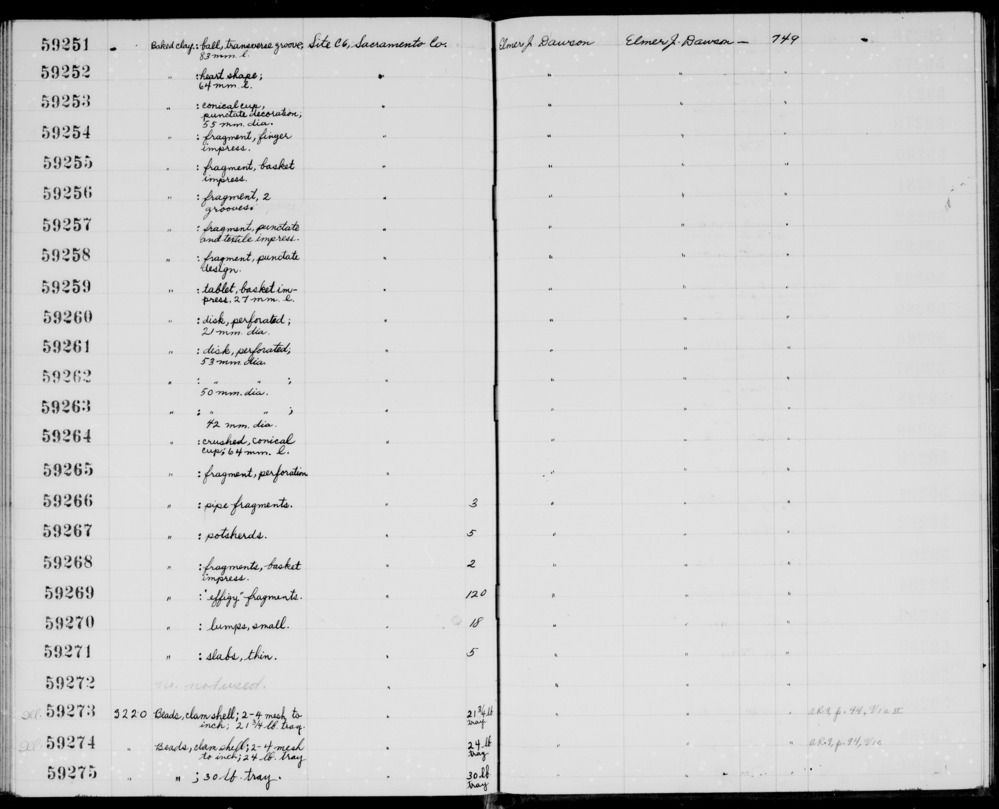 59251 Baked clay: ball, transverse groove, Site C6, Sacramento Co. Elmer J. Dawson Elmer J. Dawson — 749
83 mm. l.
59252 " : heart shape; " " " "
64 mm. l.
59253 " : conical cup, " " " "
punctate decoration;
55 mm. dia.
59254 " : fragment, finger " " " "
impress.
59255 " : fragment, basket " " " "
impress.
59256 " : fragment, 2 " " " "
grooves.
59257 " : fragment, punctate " " " "
and textile impress.
59258 " : fragment, punctate " " " "
design.
59259 " : tablet, basket im- " " " "
press. 27 mm. l.
59260 " : disk, perforated; " " " "
21 mm. dia.
59261 " : disk, perforated; " " " "
53 mm dia.
59262 " : " " ; " " " "
50 mm. dia.
59263 " : " " ; " " " "
42 mm. dia.
59264 " : crushed, conical " " " "
cup; 64 mm. l.
59265 " : fragment, perforation " " " "
59266 " : pipe fragments. " 3 " " "
59267 " : potsherds. " 5 " " "
59268 " : fragments, basket " 2 " " "
impress.
59269 " : "effigy" fragments. " 120 " " "
59270 " : lumps, small. " 18 " " "
59271 " : slabs, thin. " 5 " " "
59272 no. not used.
59273 3220 Beads, clam shell; 2-4 mesh to " 21 3/4 lb " " "
inch; 21 3/4 lb. tray tray
59274 " Beads, clam shell; 2-4 mesh " 24 lb " " "
to inch; 24 lb. tray tray
59275 " " ; 30 lb. tray. " 30 lb " " "
tray